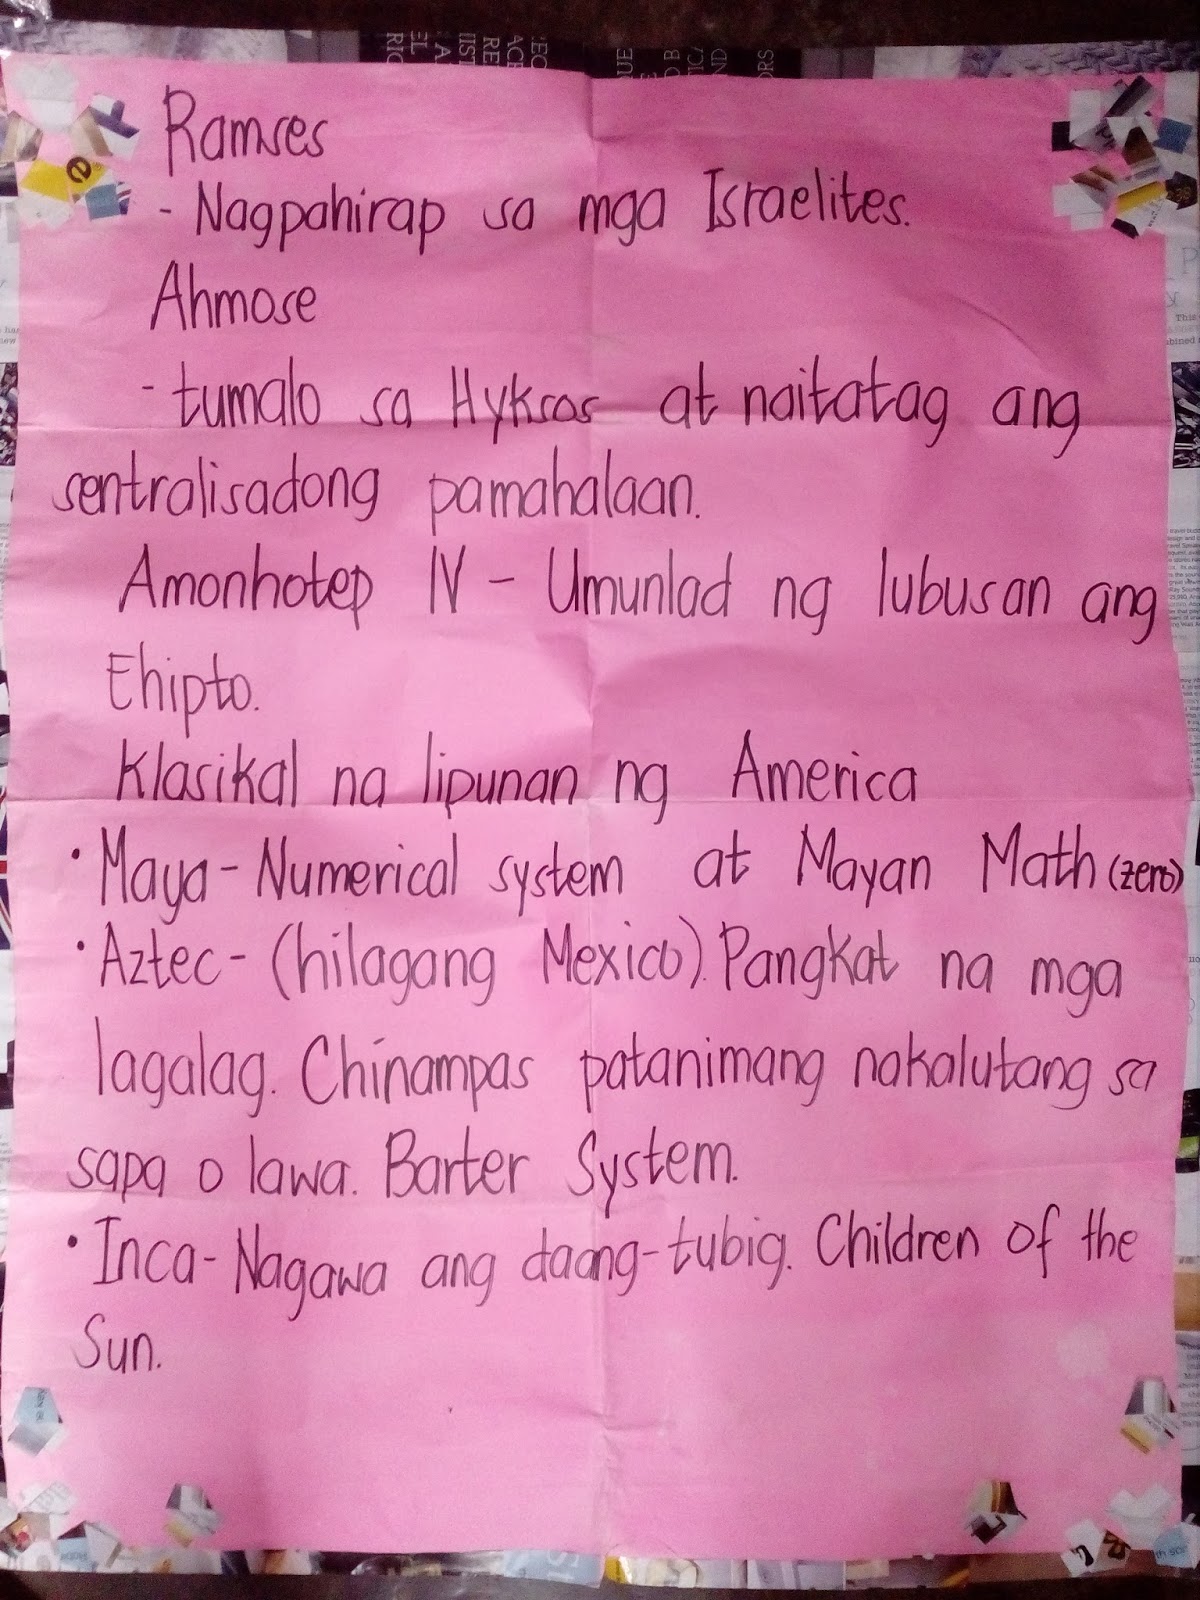 Ramses
- Nagpahirap sa mga Israelites.
Ahmose
- tumalo sa Hyksos at naitatag ang
sentralisadong pamahalaan.
Amonhotep IV - Umunlad ng lubusan ang
Ehipto.
Klasikal na lipunan ng America
• Maya - Numerical system at Mayan Math (zero)
• Aztec - (hilagang Mexico). Pangkat na mga
lagalag. Chinampas patanimang nakalutang sa
sapa o lawa. Barter System.
• Inca - Nagawa ang daang-tubig. Children of the
Sun.